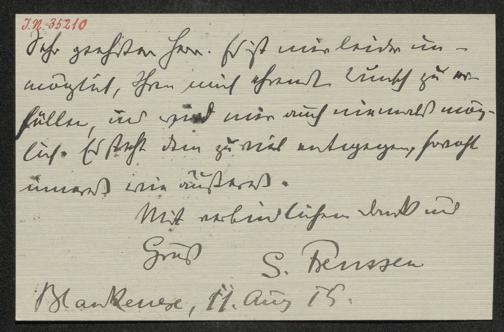 I.N. 35210
Sehr geehrter Herr. Es ist mir leider un-
möglich, Ihren mich ehrenden Wunsch zu er-
füllen, und wird mir auch niemals mög-
lich. Es steht dem zu viel entgegen, sowohl
inneres wie äußeres.
Mit verbindlichem Dank und
Gruß
G. Frenssen
Blankenese, 11. Aug 15.